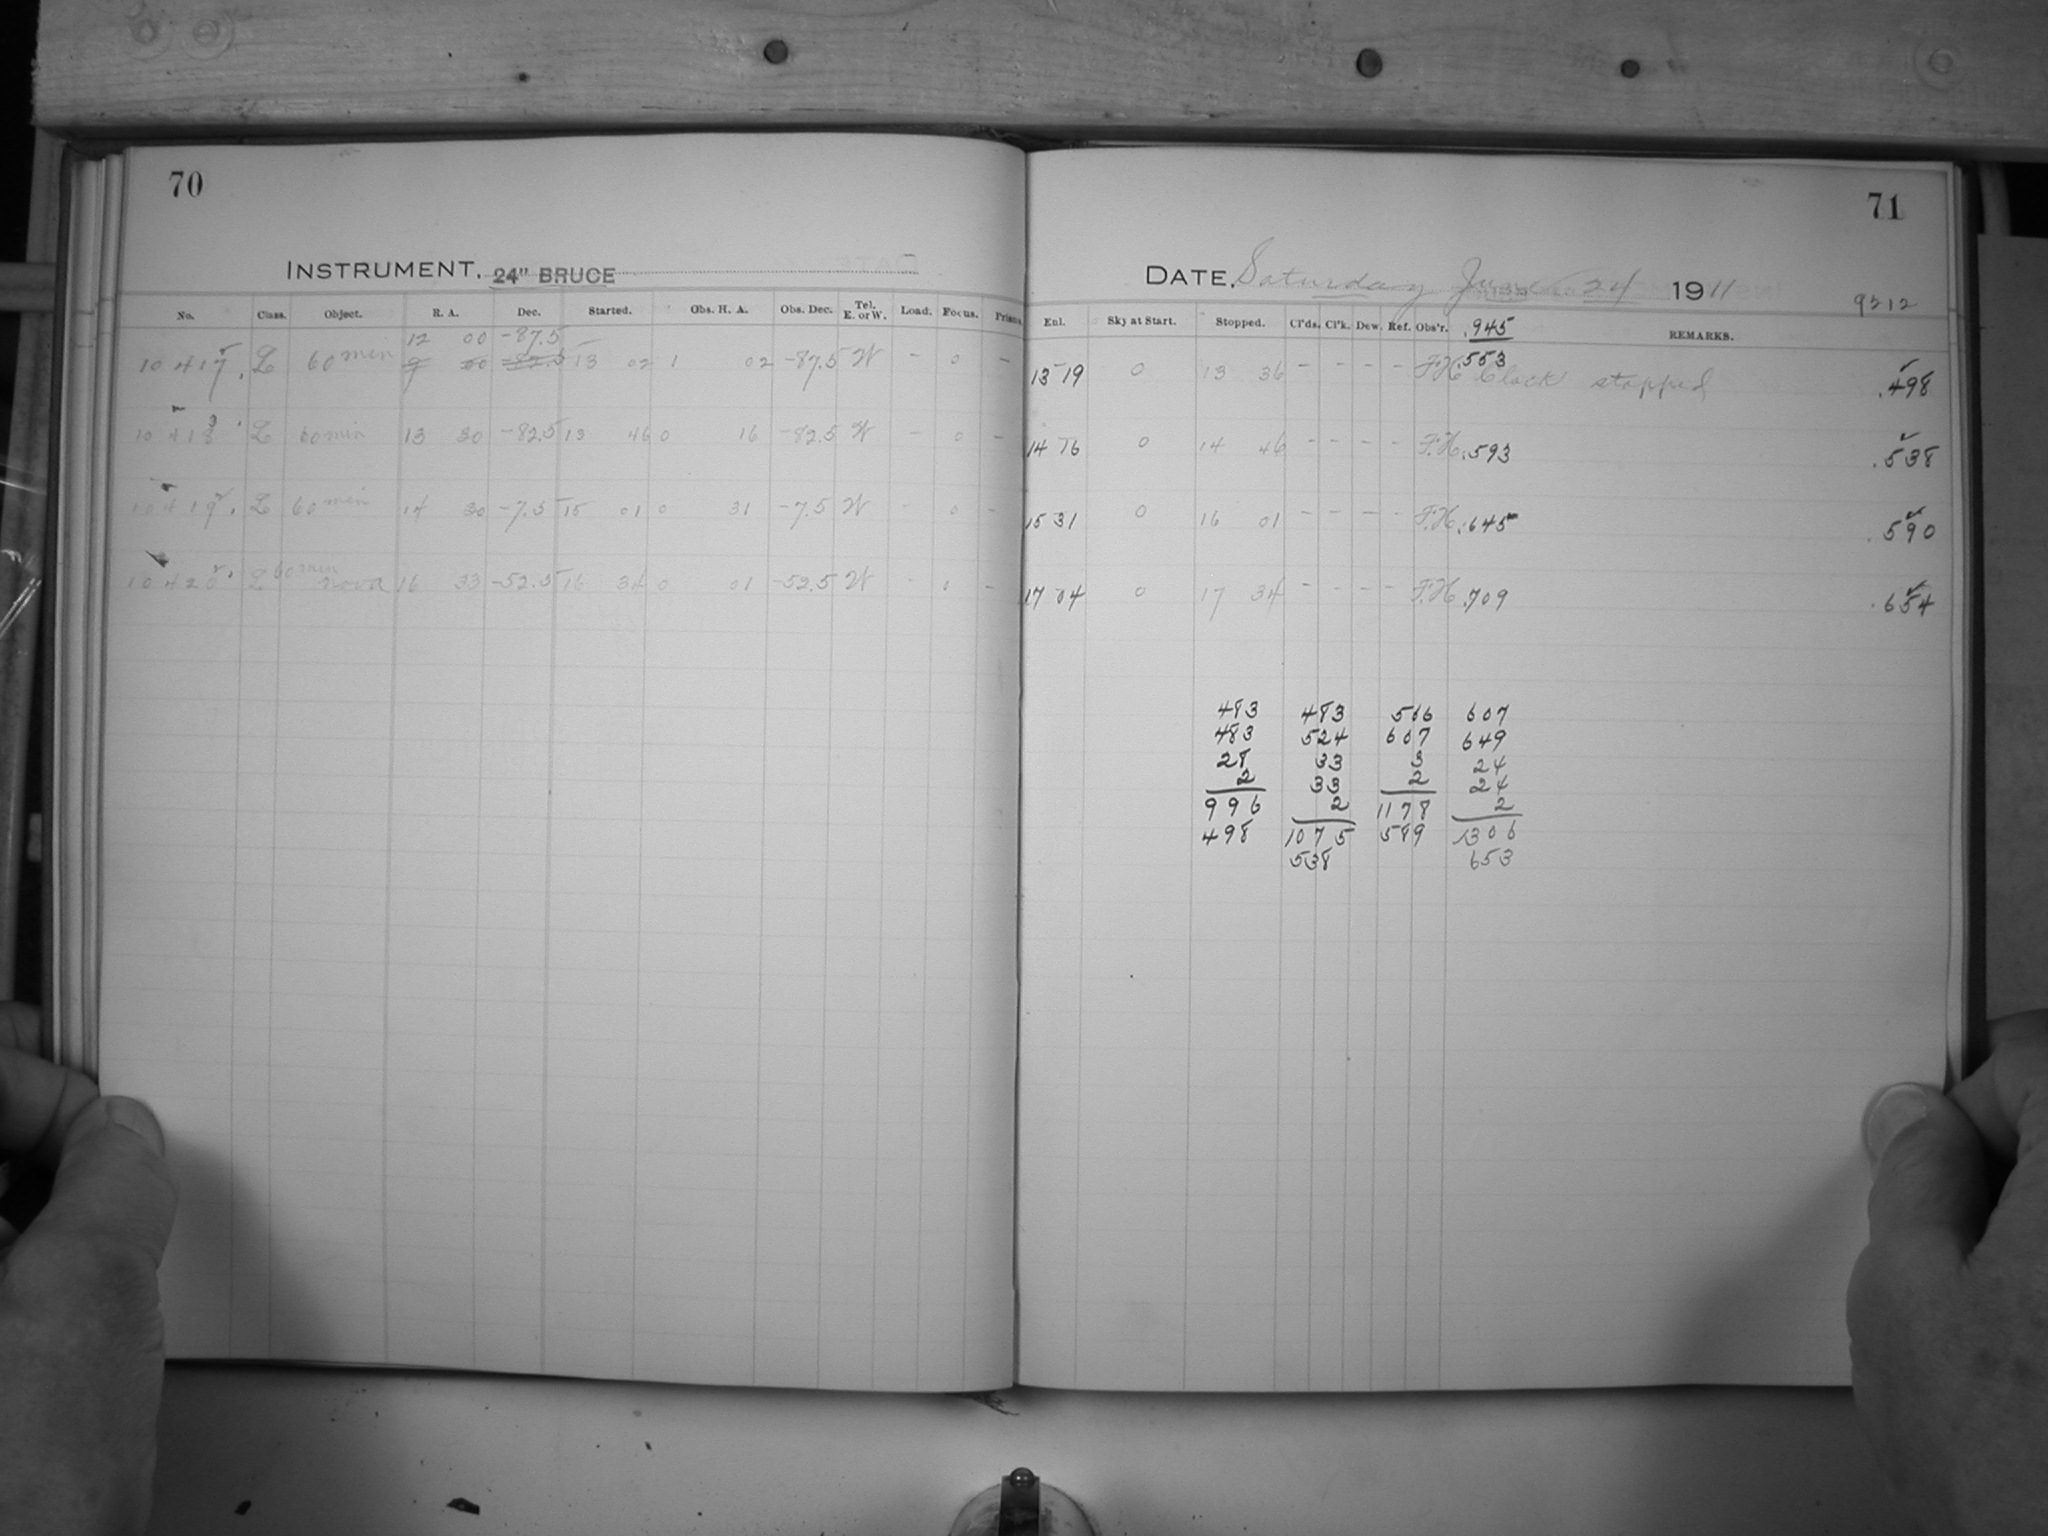 70
INSTRUMENT. 24" BRUCE
No. Class. Object. R. A. Dec. Started. Obs. H. A. Obs. Dec. Tel. E. or W. Load. Focus. Prism.
12 00 -87.5
10417. L 60 min 9 00 -82.5 13 02 1 02 -87.5 W - 0 -
10418. L 60 min 13 30 -82.5 13 46 0 16 -82.5 W - 0 -
10419. L 60 min 14 30 -7.5 15 01 0 31 -7.5 W - 0 -
10420. L 60 min nova 16 33 -52.5 16 34 0 01 -52.5 W - 0 -
71
DATE. Saturday June 24 1911
9212
Enl. Sky at Start. Stopped. Cl'ds. Cl'k. Dew. Ref. Obs'r. .945 REMARKS.
13 19 0 13 36 - - - - F.H. .553 Clock stopped .498
14 16 0 14 46 - - - - F.H. .593 .538
15 31 0 16 01 - - - - F.H. .645 .590
17 04 0 17 34 - - - - F.H. .709 .654
483 483 566 607
483 524 607 649
28 33 3 24
2 33 2 24
996 2 1178 2
498 1075 589 1306
538 653